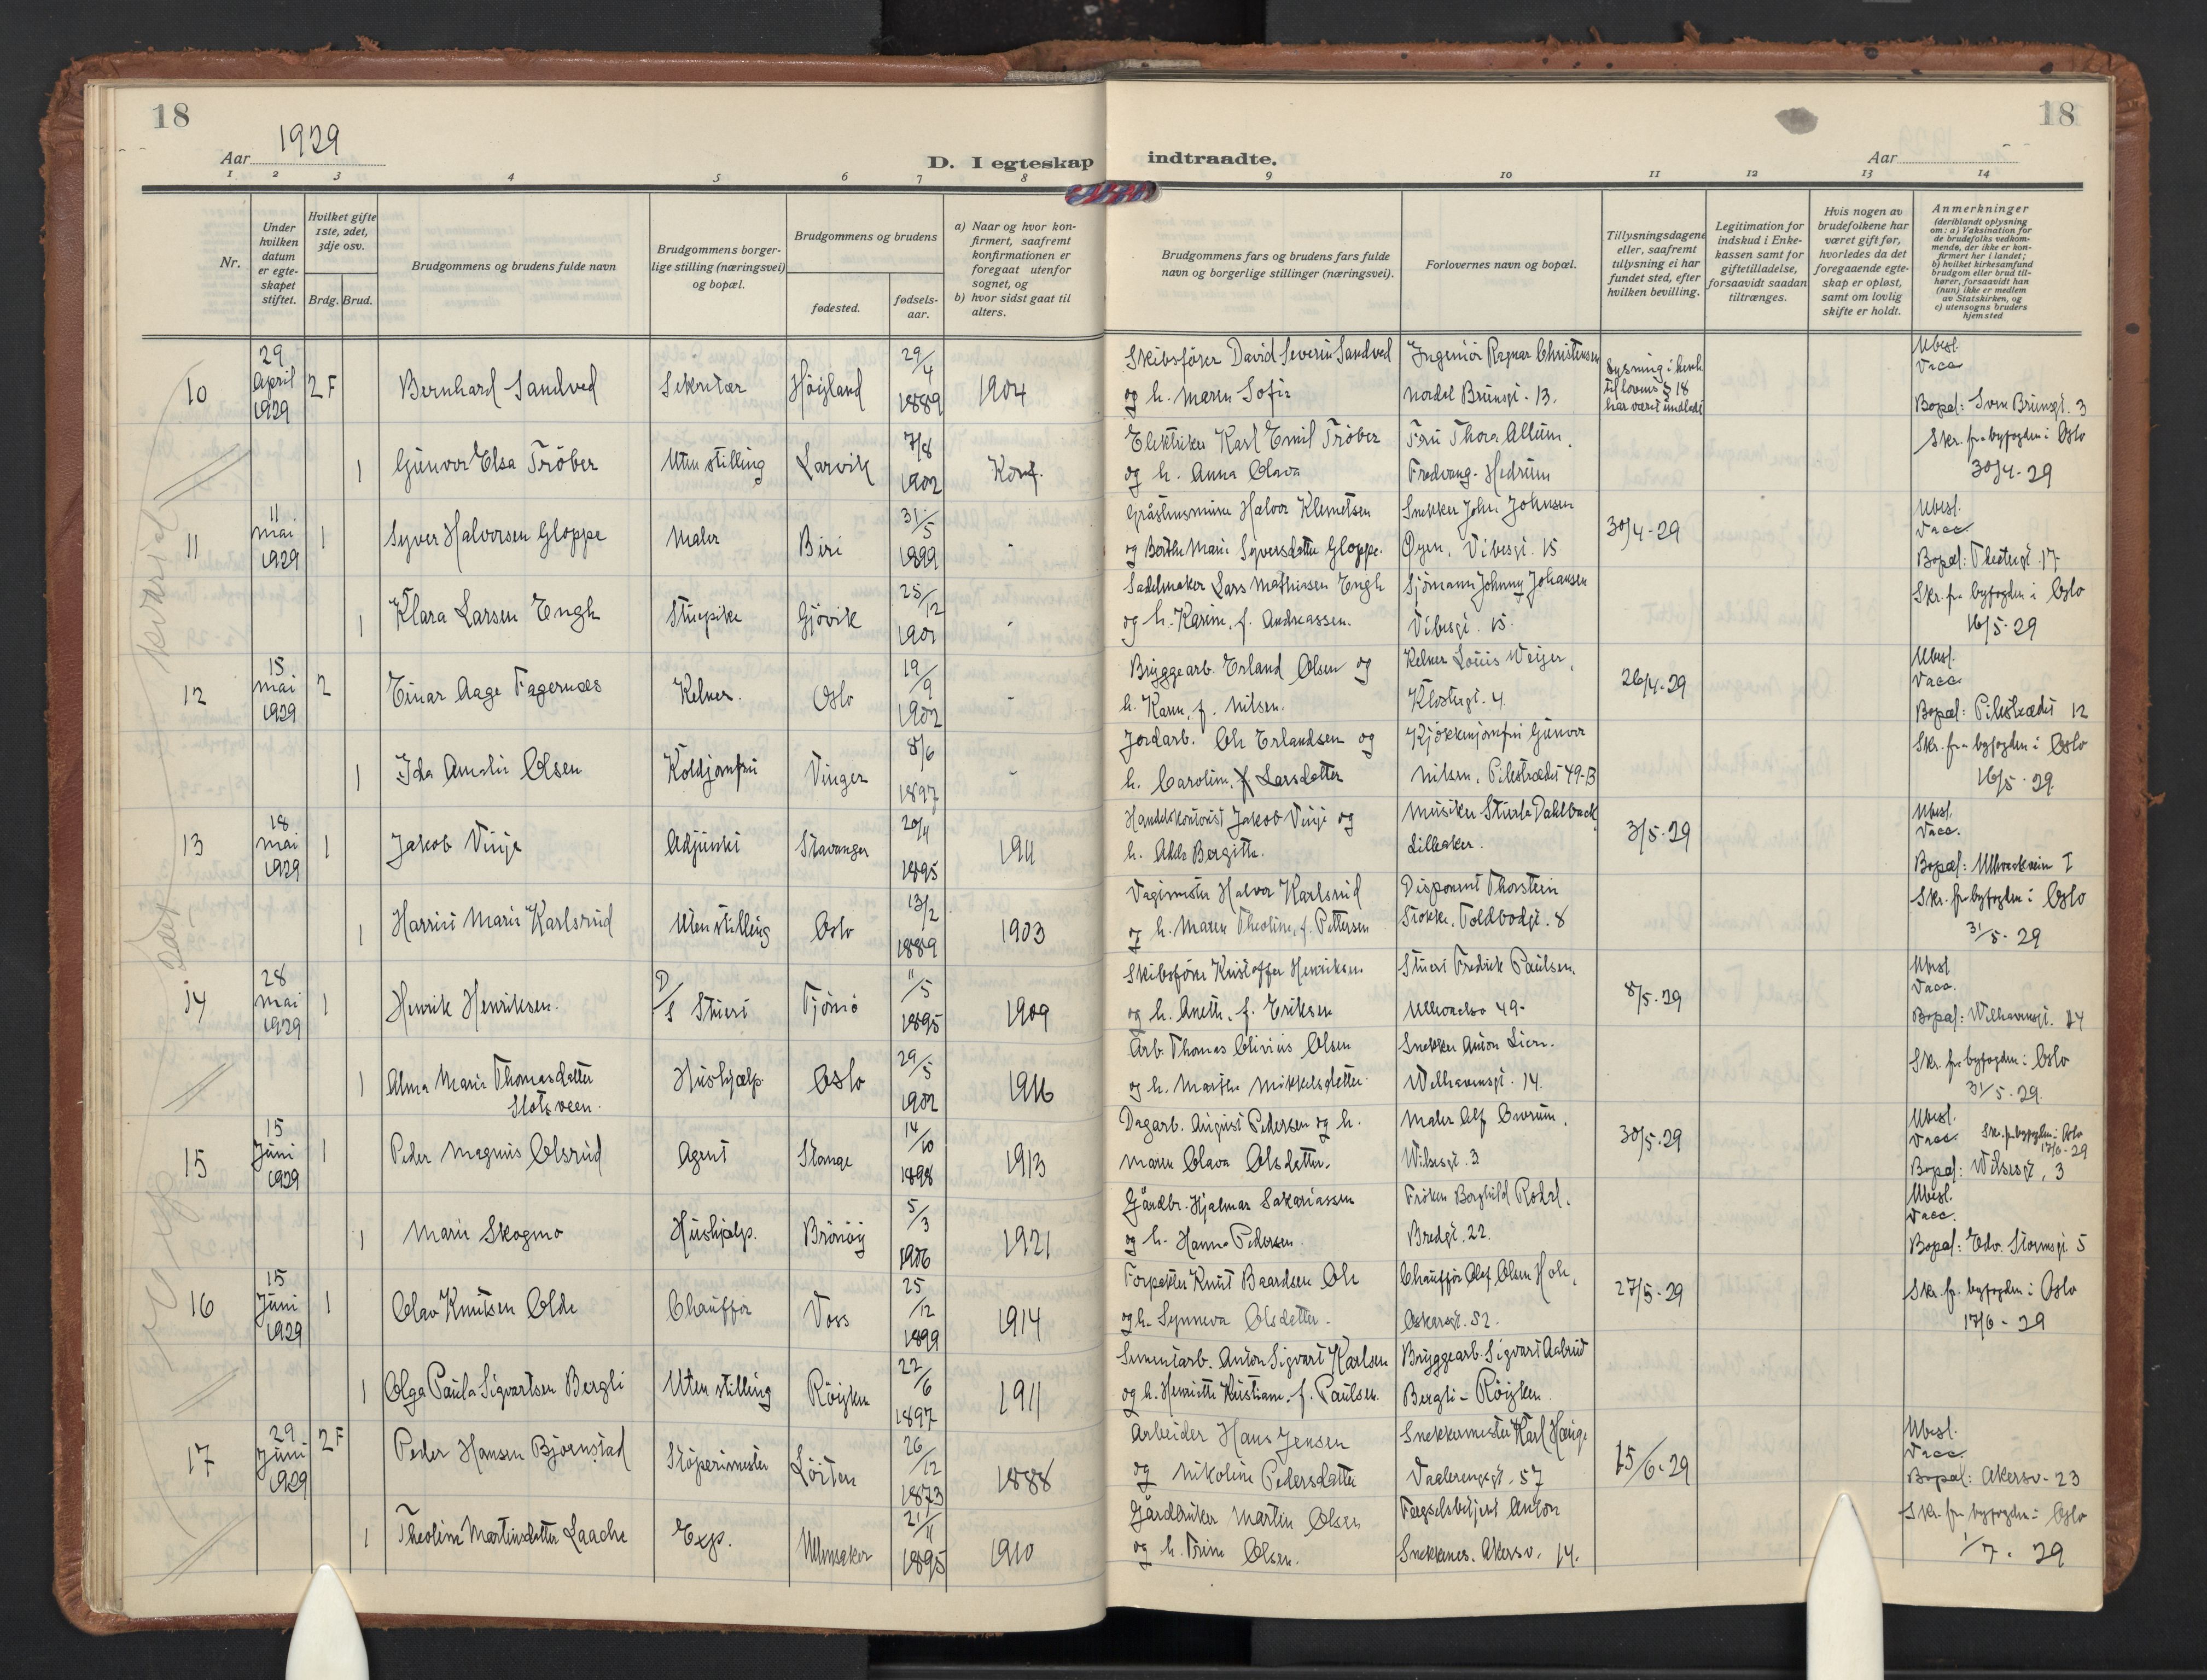 18
18
Aar 1929
D. I egteskap indtraadte.
Aar
1 2 3 4 5 6 7 8 9 10 11 12 13 14
Nr.
Under
hvilken
datum
er egte-
skapet
stiftet.
Hvilket gifte
1ste, 2det,
3dje osv.
Brdg. Brud.
Brudgommens og brudens fulde navn
Brudgommens borger-
lige stilling (næringsvei)
og bopæl.
Brudgommens og brudens
fødested.
fødsels-
aar.
a) Naar og hvor kon-
firmert, saafremt
konfirmationen er
foregaat utenfor
sognet, og
b) hvor sidst gaat til
alters.
Brudgommens fars og brudens fars fulde
navn og borgerlige stillinger (næringsvei).
Forlovernes navn og bopæl.
Tillysningsdagene
eller, saafremt
tillysning ei har
fundet sted, efter
hvilken bevilling.
Legitimation for
indskud i Enke-
kassen samt for
giftetilladelse,
forsaavidt saadan
tiltrænges.
Hvis nogen av
brudefolkene har
været gift før,
hvorledes da det
foregaaende egte-
skap er opløst,
samt om lovlig
skifte er holdt.
Anmerkninger
(deriblandt oplysning
om: a) Vaksination for
de brudefolks vedkom-
mende, der ikke er kon-
firmert her i landet;
b) hvilket kirkesamfund
brudgom eller brud til-
hører, forsaavidt han
(hun) ikke er medlem
av Statskirken, og
c) utensogns bruders
hjemsted
10
29
April
1929
2 F
Bernhard Sandved
Sekretær
Höyland
29/4
1889
1904
Skibsfører David Severin Sandved
og h. Maren Sofie
Ingeniør Ragnar Christensen
Nordal Brunsgt. 13.
Lysning i henh.
til lovens § 18
har vært undladt
Ubesl.
Vacc.
Bopæl: Sven Brunsgt. 3
1
Gunvor Elsa Tröber
Uten stilling
Larvik
7/8
1902
Konf.
Elektriker Karl Emil Tröber
og h. Anna Olava
Fru Thora Allum.
Fredvang - Hedrum
Skr. fra byfogden i Oslo
30/4 - 29
11
11
Mai
1929
1
Syver Halvorsen Gloppe
Maler
Biri
31/5
1899
-
Gråstensminer Halvor Klemetsen
og Berthe Marie Syversdatter Gloppe.
Snekker John Johnsen
Øyen, Vibesgt. 15
30/4 - 29
Ubesl.
Vacc.
Bopæl: Thestrupgt. 17
1
Klara Larsen Engh
Stuepike
Gjövik
25/12
1901
-
Sadelmaker Lars Mathiasen Engh
og h. Karine, f. Andreassen.
Sjömann Johnny Johansen
Vibesgt. 15.
Skr. fra byfogden i Oslo
16/5 - 29
12
15
Mai
1929
2
Einar Aage Fagernæs
Kelner.
Oslo
19/9
1902
-
Bryggearb. Erland Olsen og
h. Karen, f. Nilsen.
Kelner Louis Weyer,
Klostergt. 4.
26/4 - 29
Ubesl.
Vacc.
Bopæl: Pilestrædet 12
1
Ida Amalie Olsen
Koldjomfru
Vinger
8/6
1897
-
Jordarb. Ole Erlandsen og
h. Caroline, f. Larsdatter
Kjökkenjomfru Gunvor
Nilsen, Pilestrædet 49-B
Skr. fra byfogden i Oslo
16/5 - 29
13
18
Mai
1929
1
Jakob Vinje
Adjunkt
Stavanger
20/4
1895
1911
Handelskontorist Jakob Vinje og
h. Alida Bergitte.
Musiker Sturla Dahlback
Lilleaker.
3/5 - 29
Ubesl.
Vacc.
Bopæl: Ullevoldsveien I
1
Harriet Marie Karlsrud
Uten stilling
Oslo
13/2
1889
1903
Vagtmester Halvor Karlsrud
og h. Maren Theoline, f. Pettersen
Disponent Thorstein
Stokke, Toldbodgt. 8
Skr. fra byfogden i Oslo
31/5 - 29
14
28
Mai
1929
1
Henrik Henriksen.
D/S Stuert
Tjömö
11/5
1895
1909
Skibsfører Kristoffer Henriksen
og h. Anette, f. Eriksen
Stuert Fredrik Paulsen,
8/5 - 29
Ubesl.
Vacc.
Bopæl: Welhavensgt. 14
1
Alma Marie Thomasdatter
Slotsveen.
Hushjælp
Oslo
29/5
1902
1916
Arb. Thomas Olivius Olsen
og h. Marthe Mikkelsdatter
Snekker Anton Lien.
Welhavensgt. 14.
Skr. fra byfogden i Oslo
31/5 - 29.
15
15
Juni
1929
1
Peder Magnus Olsrud
Agent
Stange
14/10
1898
1913
Dagarb. August Pedersen og h.
Maren Olava Olsdatter.
Maler Alf Overum,
Wilsesgt. 3
30/5 - 29
Ubesl.
Vacc. Skr. fr. byfogden i Oslo
17/6 - 29
Bopæl: Wilsesgt. 3
1
Marie Skogmo
Hushjælp.
Brönöy
5/3
1906
1921
Gårdbr. Hjalmar Sakariassen
og h. Hanna Pedersen.
Fröken Borghild Rodal.
Bredgt. 22.
Ubesl.
Vacc.
Bopæl: Edv. Stormsgt. 5
16
15
Juni
1929
1
Olav Knutsen Olde
Chauffør
Voss
25/12
1899
1914
Forpakter Knut Baardsen Ole
og h. Synneva Olsdatter.
Chauffør Olef Olsen Hole,
Oskarsgt. 52.
27/5 - 29
Skr. fr. byfogden i Oslo
17/6 - 29
1
Olga Paula Sigvartsen Bergli
Uten stilling
Röyken
22/6
1897
1911
Sementarb. Anton Sigvart Karlsen
og h. Henriette Kristiane, f. Paulsen.
Bryggearb. Sigvart Aabrud
Bergli - Röyken
17
29
Juni
1929
2 F
Peder Hansen Björnstad
Støperimester
Löiten
26/12
1873
1888
Arbeider Hans Jensen
og Nikoline Pedersdatter
Snekkermester Karl Hauge
Vaalerenggt. 57
15/6 - 29
Ubesl.
Vacc.
Bopæl: Akersv. 23
1
Theoline Martinsdatter Laache
Exp.
Ullensaker
21/11
1895
1910
Gårdbruker Martin Olsen
og h. Trine Olsen.
Fængselsbetjent Anton
Snekkenes. Akersv. 14.
Skr. fra byfogden i Oslo
1/7 - 29